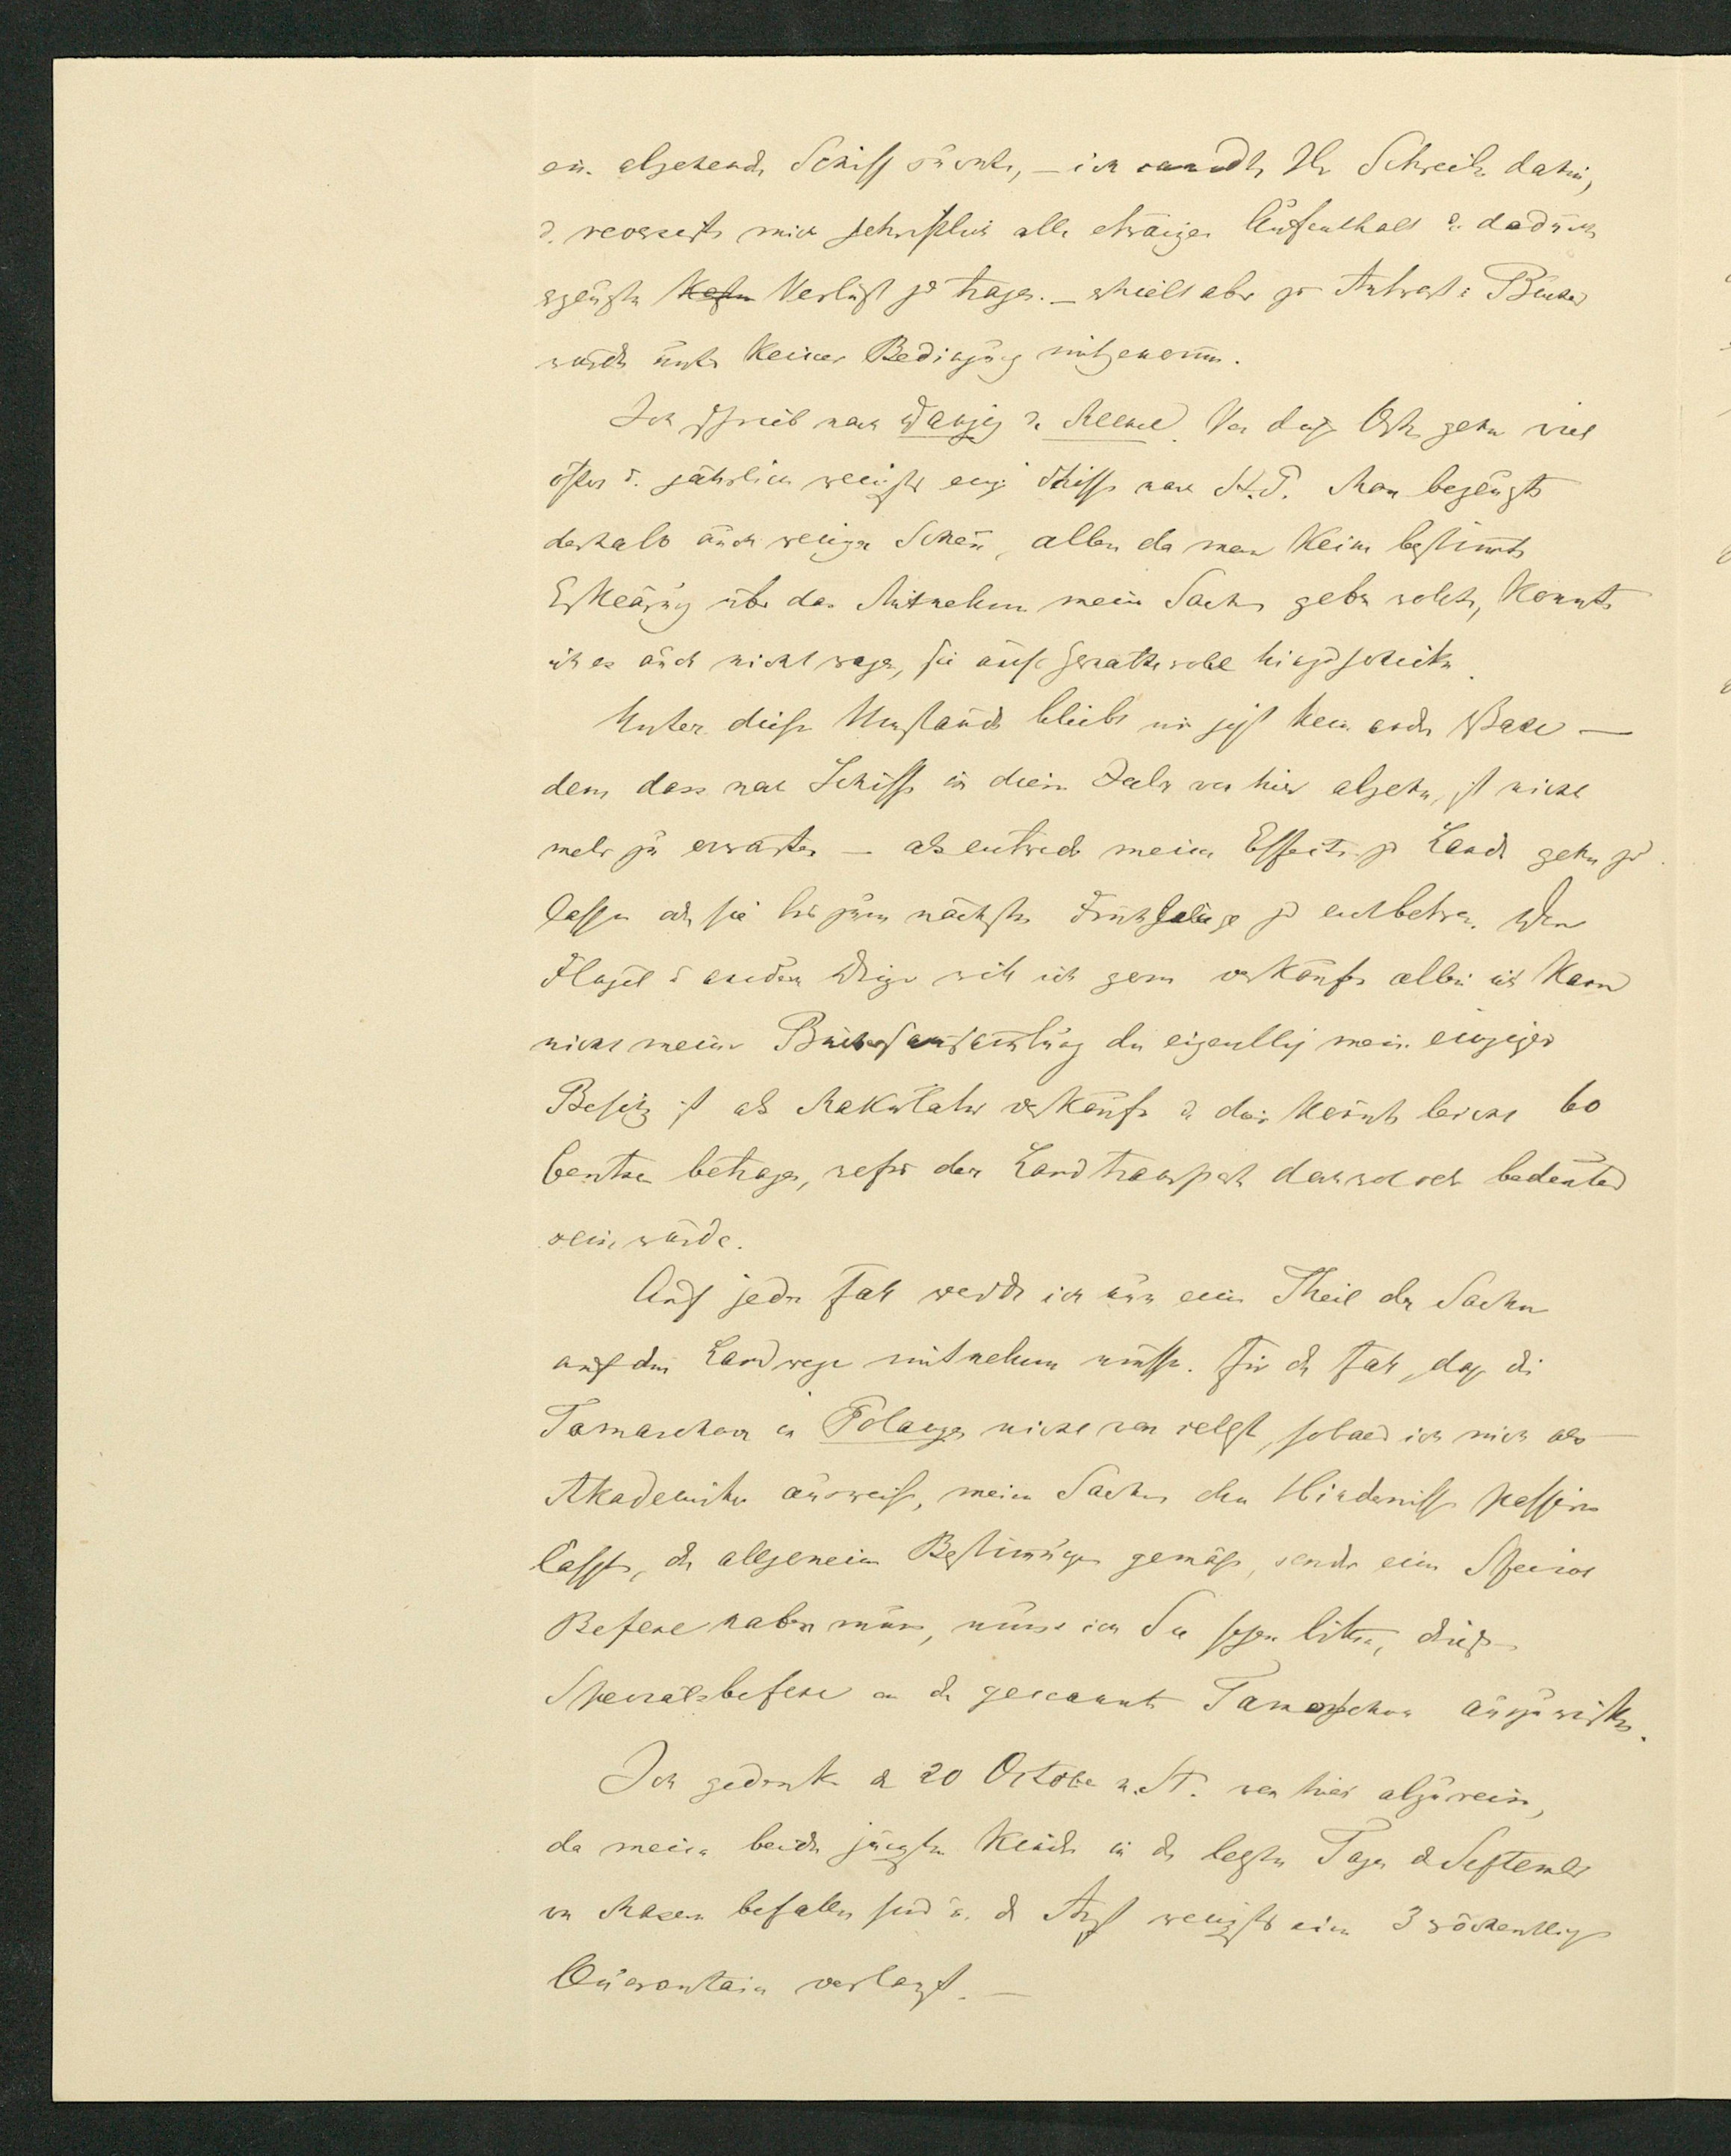 ein abgehends Schiff suchte, – ich sandte Ihr Schreib. dahin,
u. reversirte mich schriftlich alle etwaigen Aufenthalt u. dadurch
erzeugten Kosten Verlust zu tragen. – erhielt aber zur Antwort: Bücher
würden unter keiner Bedingung mitgenomm.
Ich schrieb nach Danzig u. Memel. Von diesen Orten gehn viel
öfter u. jährlich wenigsts einige Schiffe nach St. P. Man bezeugte
deshalb auch weniger Scheu, allein da man keine bestimmte
Erklärung über das Mitnehmen meiner Sachen geben wollte, konnte
ich es auch nicht wagen, sie aufs Gerathewohl hinzuschicken.
Unter diesen Umständen bleibt mir jetzt kein andre Wahl –
denn dass noch Schiffe in diesem Jahr von hier abgehn, ist nicht
mehr zu erwarten – als entweder meine Effecten zu Lande gehn zu
lassen oder sie bis zum nächsten Frühjahre zu entbehren. Den
Flügel u andere Dinge will ich gern verkaufen allein ich kann
nicht meine Büchersammlung die eigentlich mein einziger
Besitz ist als Makulatur verkaufen u die könnte leicht 60
Centner betragen, wofür der Landtransport doch bedeutend
sein würde.
Auf jeden Fall werde ich nun einen Theil der Sachen
auf dem Landwege mitnehmen müssen. Für den Fall, dass die
Tamoschna in Polangen nicht von selbst, sobald ich mich als
Akademiker ausweise, meine Sachen ohne Hinderniss passiren
lasst, den allgemeinen Bestimmungen gemäss, sondern einen Special
Befehl haben muss, muss ich Sie bitten, diesen
Specialbefehl an die genannte Tamoschna auszuwirken.
Ich gedenke d 20 October n. St. von hier abzureisen,
da meine beiden jüngsten Kinder in den letzten Tagen d September
von Masern befallen sind u. der Arzt wenigsts eine 3 wöchentliche
Quarantain verlangt. –